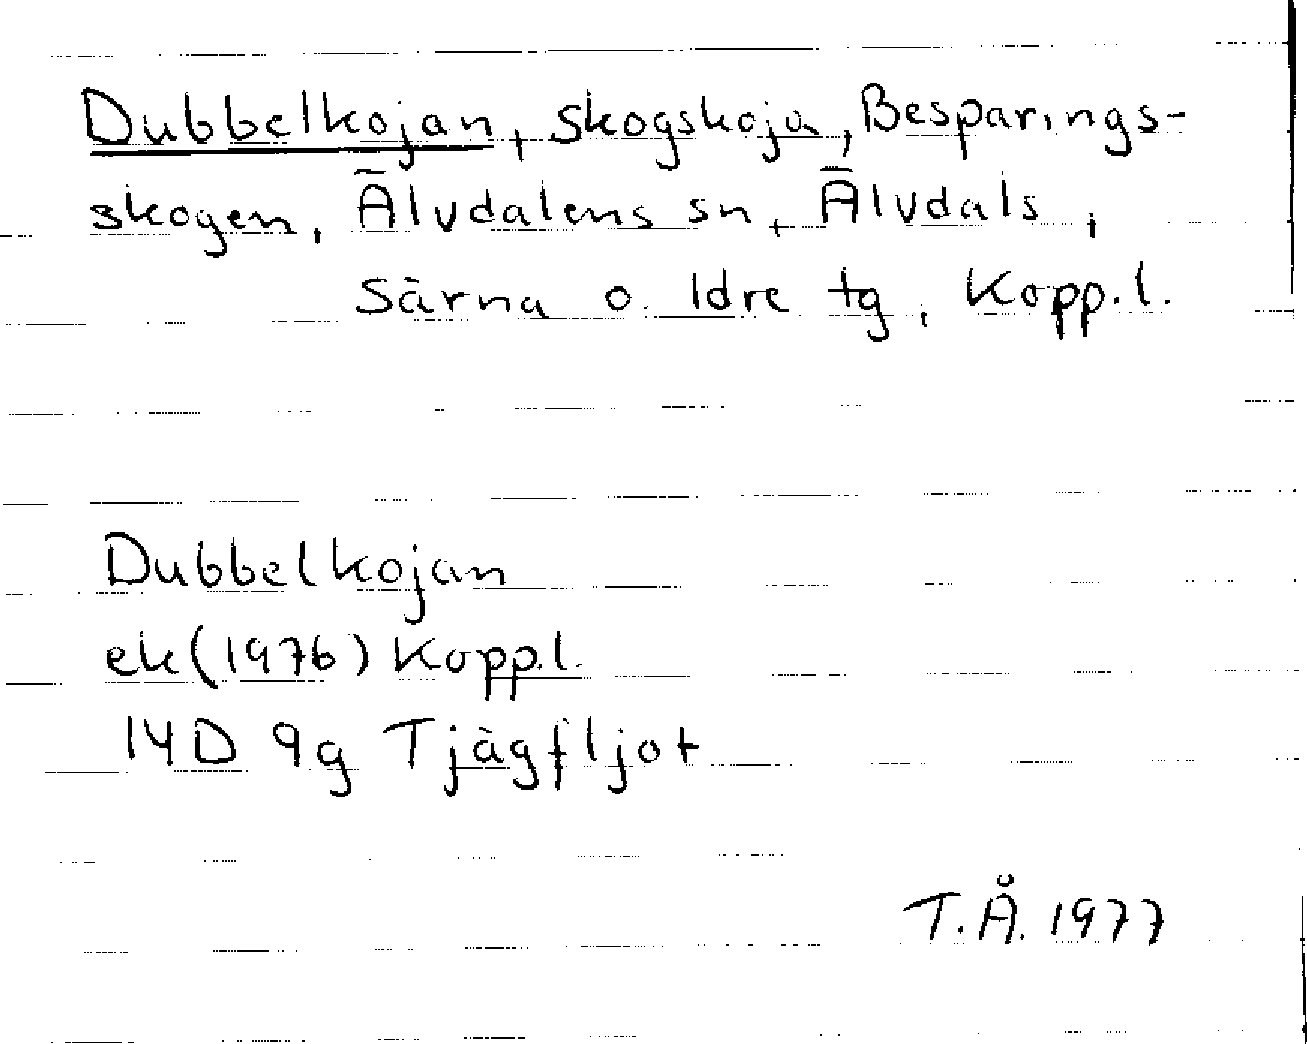 Dubbelkojan, skogskoja, Besparings-
skogen, Älvdalens sn, Älvdals,
Särna o. Idre tg, Kopp.l.
Dubbelkojan
ek(1976) Kopp.l.
14D 9g Tjågfljot
T.Å. 1977